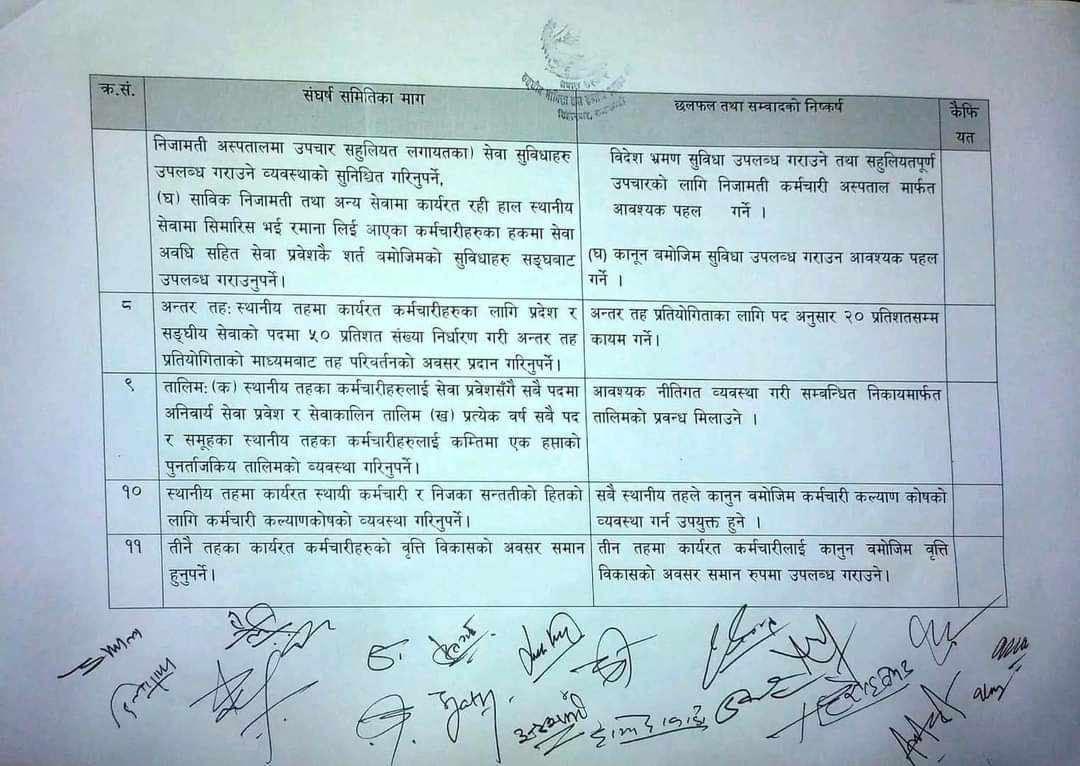 नेपाल सरकार
क्र.सं.
संघर्ष समितिका माग
छलफल तथा सम्वादको निष्कर्ष
कैफि
यत
निजामती अस्पतालमा उपचार सहुलियत लगायतका) सेवा सुविधाहरु
उपलब्ध गराउने व्यवस्थाको सुनिश्चित गरिनुपर्ने,
(घ) साविक निजामती तथा अन्य सेवामा कार्यरत रही हाल स्थानीय
सेवामा सिमारिस भई रमाना लिई आएका कर्मचारीहरुका हकमा सेवा
अवधि सहित सेवा प्रवेशकै शर्त बमोजिमको सुविधाहरु सङ्घबाट
उपलब्ध गराउनुपर्ने।
विदेश भ्रमण सुविधा उपलब्ध गराउने तथा सहुलियतपूर्ण
उपचारको लागि निजामती कर्मचारी अस्पताल मार्फत
आवश्यक पहल गर्ने ।
(घ) कानून बमोजिम सुविधा उपलब्ध गराउन आवश्यक पहल
गर्ने ।
८
अन्तर तह: स्थानीय तहमा कार्यरत कर्मचारीहरुका लागि प्रदेश र
सङ्घीय सेवाको पदमा ५० प्रतिशत संख्या निर्धारण गरी अन्तर तह
प्रतियोगिताको माध्यमबाट तह परिवर्तनको अवसर प्रदान गरिनुपर्ने।
अन्तर तह प्रतियोगिताका लागि पद अनुसार २० प्रतिशतसम्म
कायम गर्ने।
९
तालिम: (क) स्थानीय तहका कर्मचारीहरुलाई सेवा प्रवेशसँगै सबै पदमा
अनिवार्य सेवा प्रवेश र सेवाकालिन तालिम (ख) प्रत्येक वर्ष सबै पद
र समूहका स्थानीय तहका कर्मचारीहरुलाई कम्तिमा एक हप्ताको
पुनर्ताजकिय तालिमको व्यवस्था गरिनुपर्ने।
आवश्यक नीतिगत व्यवस्था गरी सम्बन्धित निकायमार्फत
तालिमको प्रवन्ध मिलाउने ।
१०
स्थानीय तहमा कार्यरत स्थायी कर्मचारी र निजका सन्ततीको हितको
लागि कर्मचारी कल्याणकोषको व्यवस्था गरिनुपर्ने।
सबै स्थानीय तहले कानुन बमोजिम कर्मचारी कल्याण कोषको
व्यवस्था गर्न उपयुक्त हुने ।
११
तीनै तहका कार्यरत कर्मचारीहरुको वृत्ति विकासको अवसर समान
हुनुपर्ने।
तीन तहमा कार्यरत कर्मचारीलाई कानुन बमोजिम वृत्ति
विकासको अवसर समान रुपमा उपलब्ध गराउने।